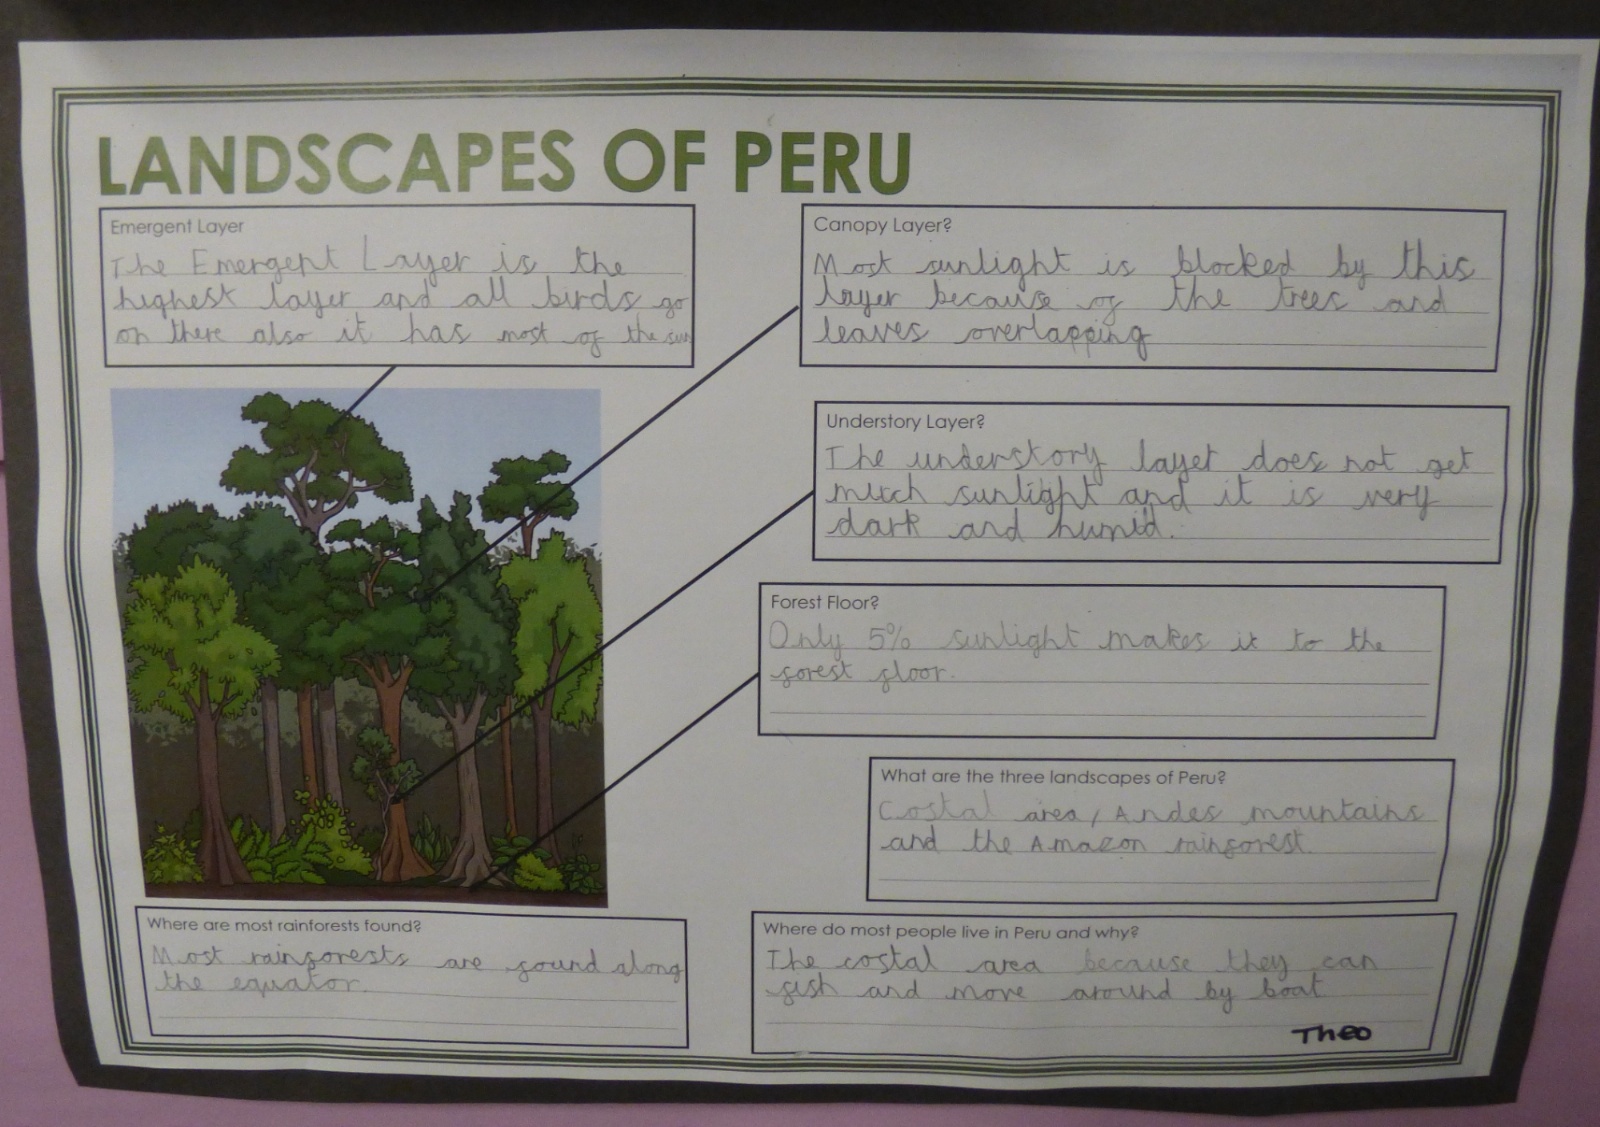 LANDSCAPES OF PERU
Emergent Layer
The Emergent Layer is the
highest layer and all birds go
on there also it has most of the sun
Canopy Layer?
Most sunlight is blocked by this
layer because of the trees and
leaves overlapping
Understory Layer?
The understory layer does not get
much sunlight and it is very
dark and humid.
Forest Floor?
Only 5% sunlight makes it to the
forest floor.
What are the three landscapes of Peru?
Costal area, Andes mountains
and the Amazon rainforest.
Where are most rainforests found?
Most rainforests are found along
the equator.
Where do most people live in Peru and why?
The costal area because they can
fish and move around by boat
Theo